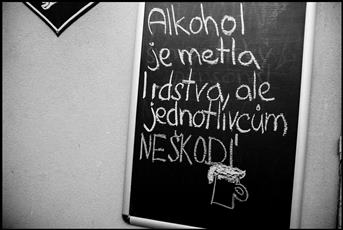 Alkohol
je metla
lidstva, ale
jednotlivcům
NEŠKODÍ